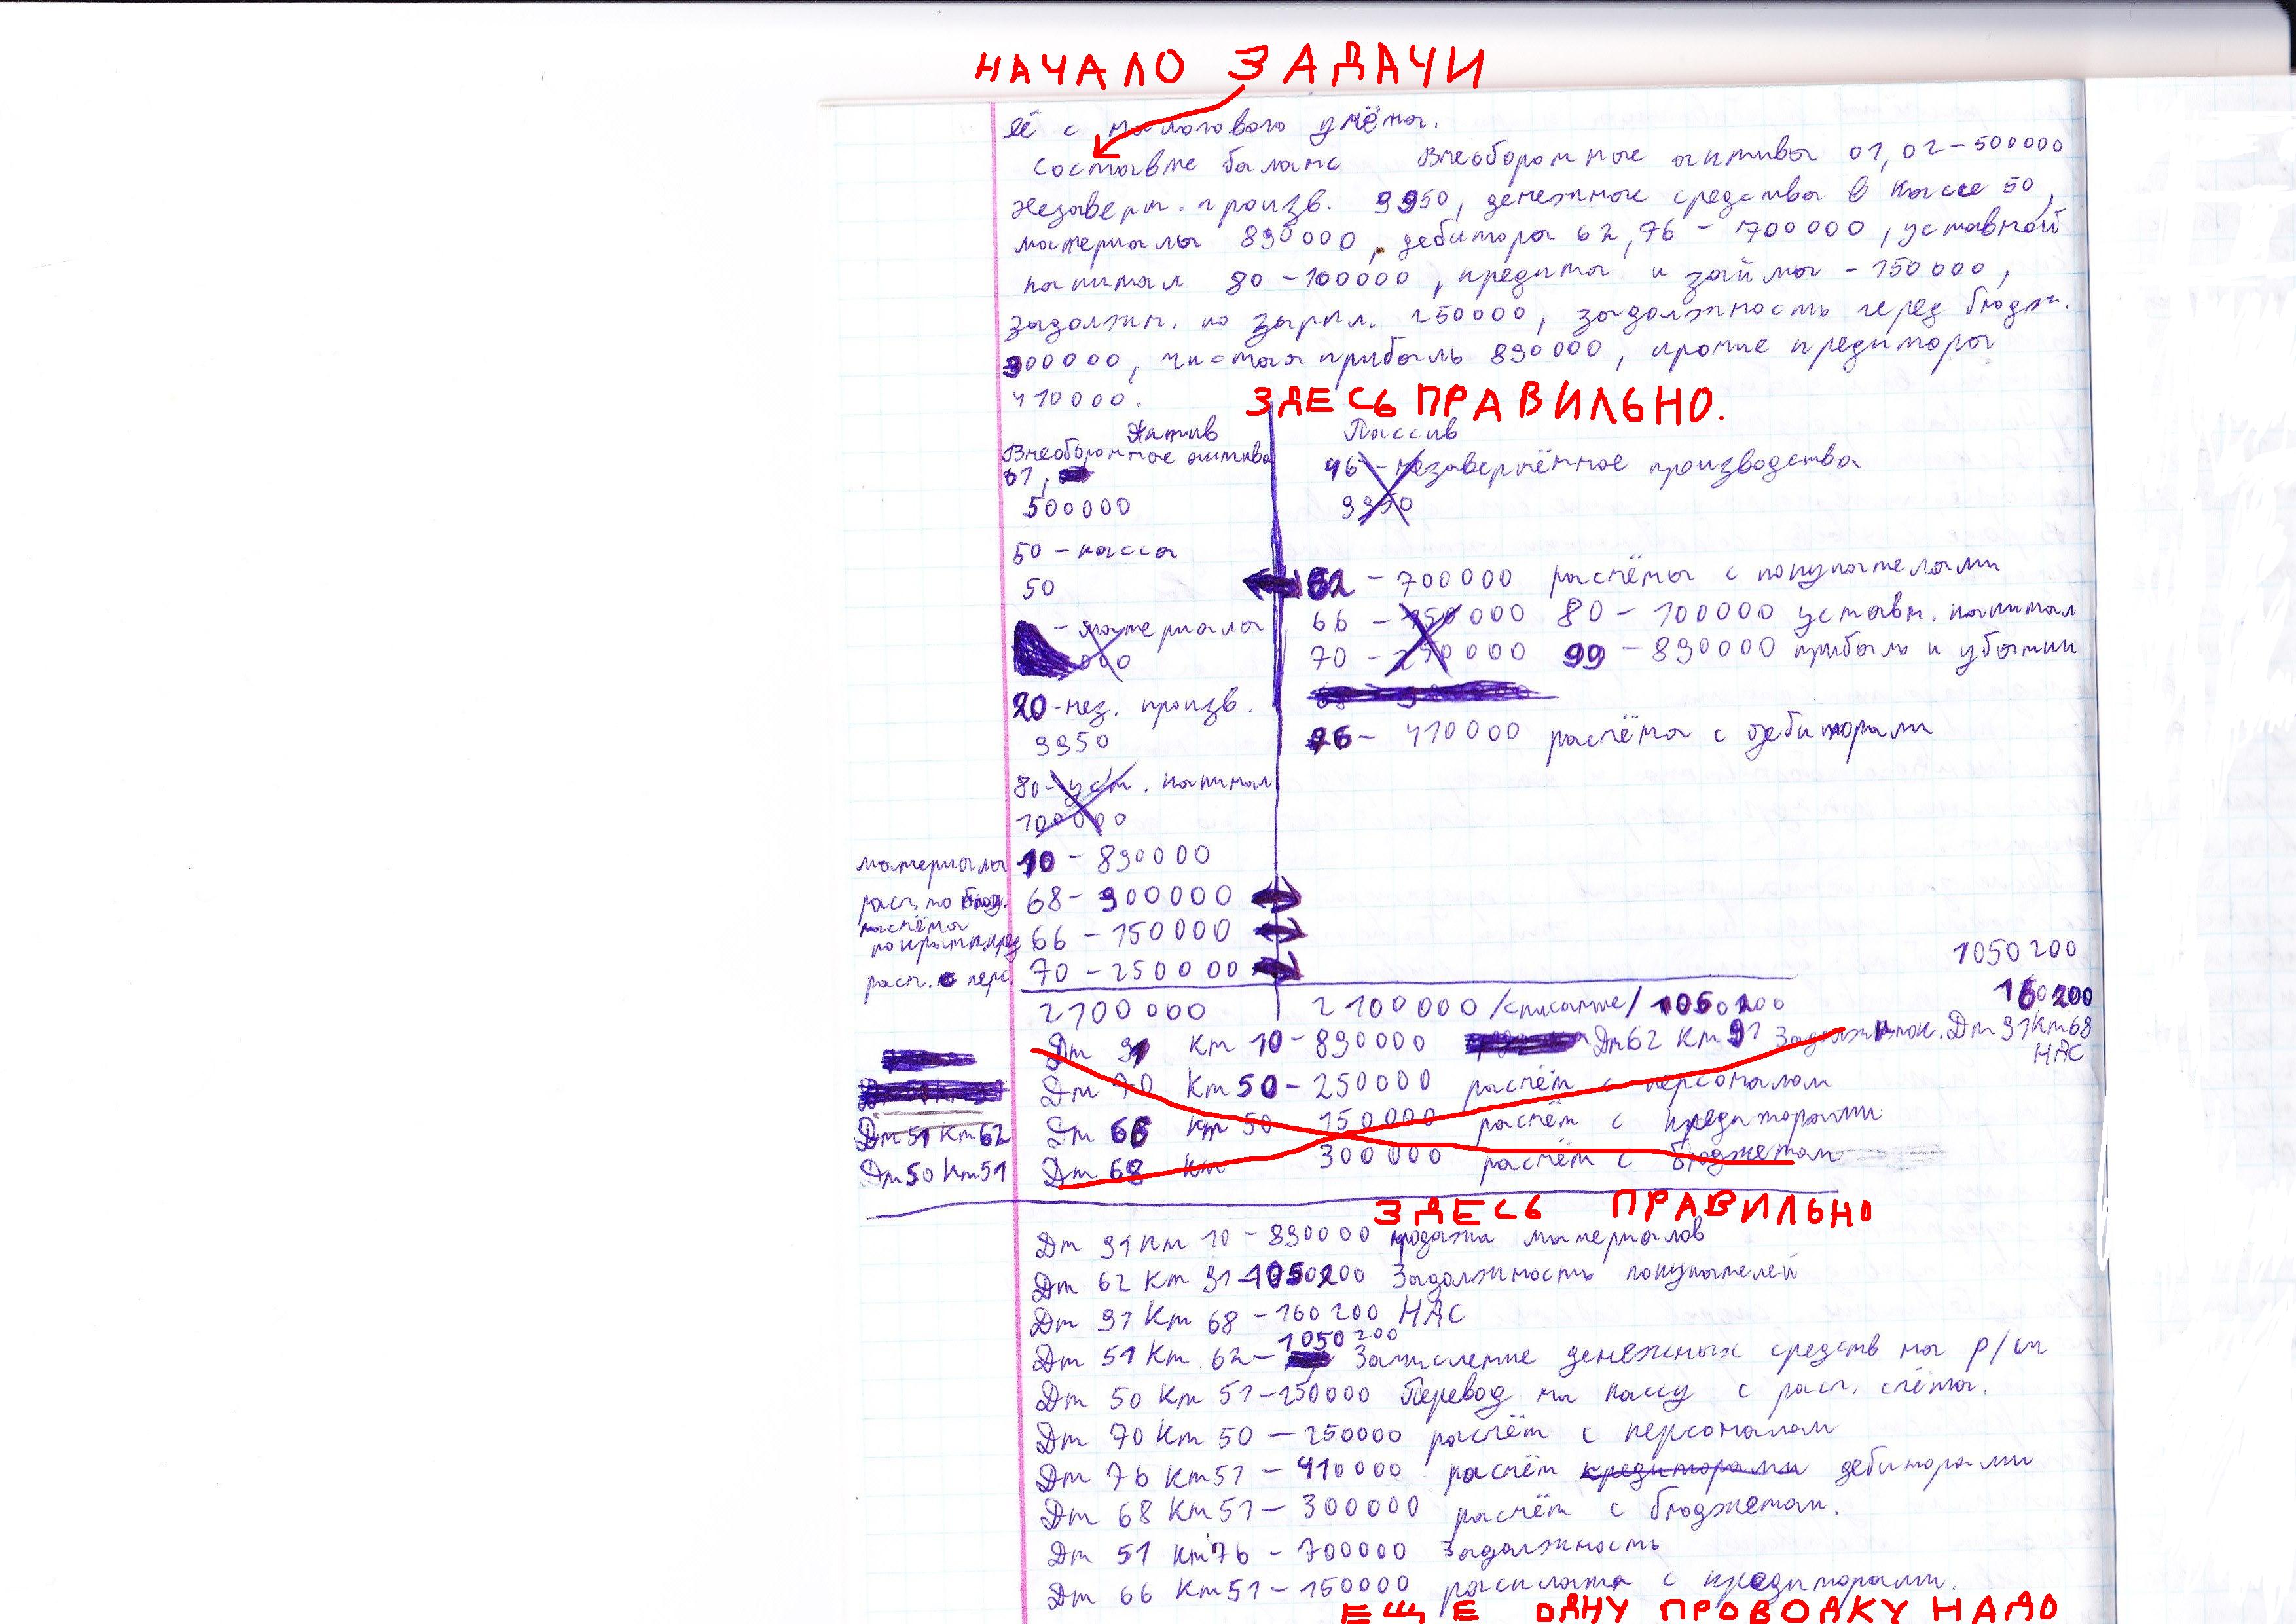 НАЧАЛО ЗАДАЧИ
её с налогового учёта.
Составте баланс Внеоборотные активы 01, 02 - 500000
незаверш. произв. 9950, денежные средства в кассе 50,
материалы 890000, дебиторы 62, 76 - 700000, уставной
капитал 80 - 100000, кредиты и займы - 150000,
задолжн. по зарпл. 250000, задолжность перед бюдж.
300000, чистая прибыль 890000, прочие кредиторы
410000.
ЗДЕСЬ ПРАВИЛЬНО.
Актив Пассив
Внеоборотные активы
01,
500000
46 - незавершённое производства
9950
50 - касса
50
62 - 700000 расчёты с покупателами
- материалы
66 - 150000 80 - 100000 уставн. капитал
70 - 250000 99 - 890000 прибыль и убытки
20 - нез. произв.
9950
76 - 410000 расчёты с дебиторами
80 - уст. капитал
100000
материалы 10 - 890000
68 - 300000
66 - 150000
расч. с перс. 70 - 250000
1050200
2100000 2100000 /списание/ 1050200
160200
Дт 91 Кт 10 - 890000 Дт 62 Кт 91 Дт 91 Кт 68
НДС
Дт 70 Кт 50 - 250000 расчёт с персоналом
Дт 51 Кт 62 Дт 66 Кт 50 150000 расчёт с кредиторами
Дт 50 Кт 51 Дт 68 Кт 300000 расчёт с бюджетом
ЗДЕСЬ ПРАВИЛЬНО
Дт 91 Кт 10 - 890000 продажа материалов
Дт 62 Кт 91 - 1050200 Задолжность покупателей
Дт 91 Кт 68 - 160200 НДС
Дт 51 Кт 62 - 1050200 Зачисление денежных средств на р/сч
Дт 50 Кт 51 - 250000 Перевод на кассу с расч. счёта.
Дт 70 Кт 50 - 250000 расчёт с персоналом
Дт 76 Кт 51 - 410000 расчёт кредиторами дебиторами
Дт 68 Кт 51 - 300000 расчёт с бюджетом.
Дт 51 Кт 76 - 700000 Задолжность
Дт 66 Кт 51 - 150000 расплата с кредиторами.
ЕЩЕ ОДНУ ПРОВОДКУ НАДО